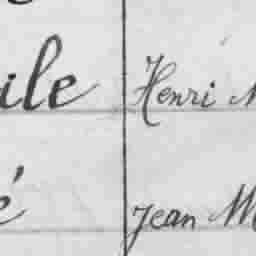 ile Henri M
é Jean M